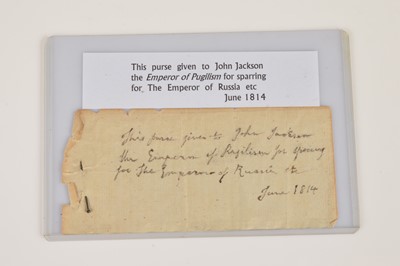 This purse given to John Jackson
the Emperor of Pugilism for sparring
for The Emperor of Russia etc
June 1814
This purse given to John Jackson
the Emperor of Pugilism for sparring
for The Emperor of Russia etc
June 1814